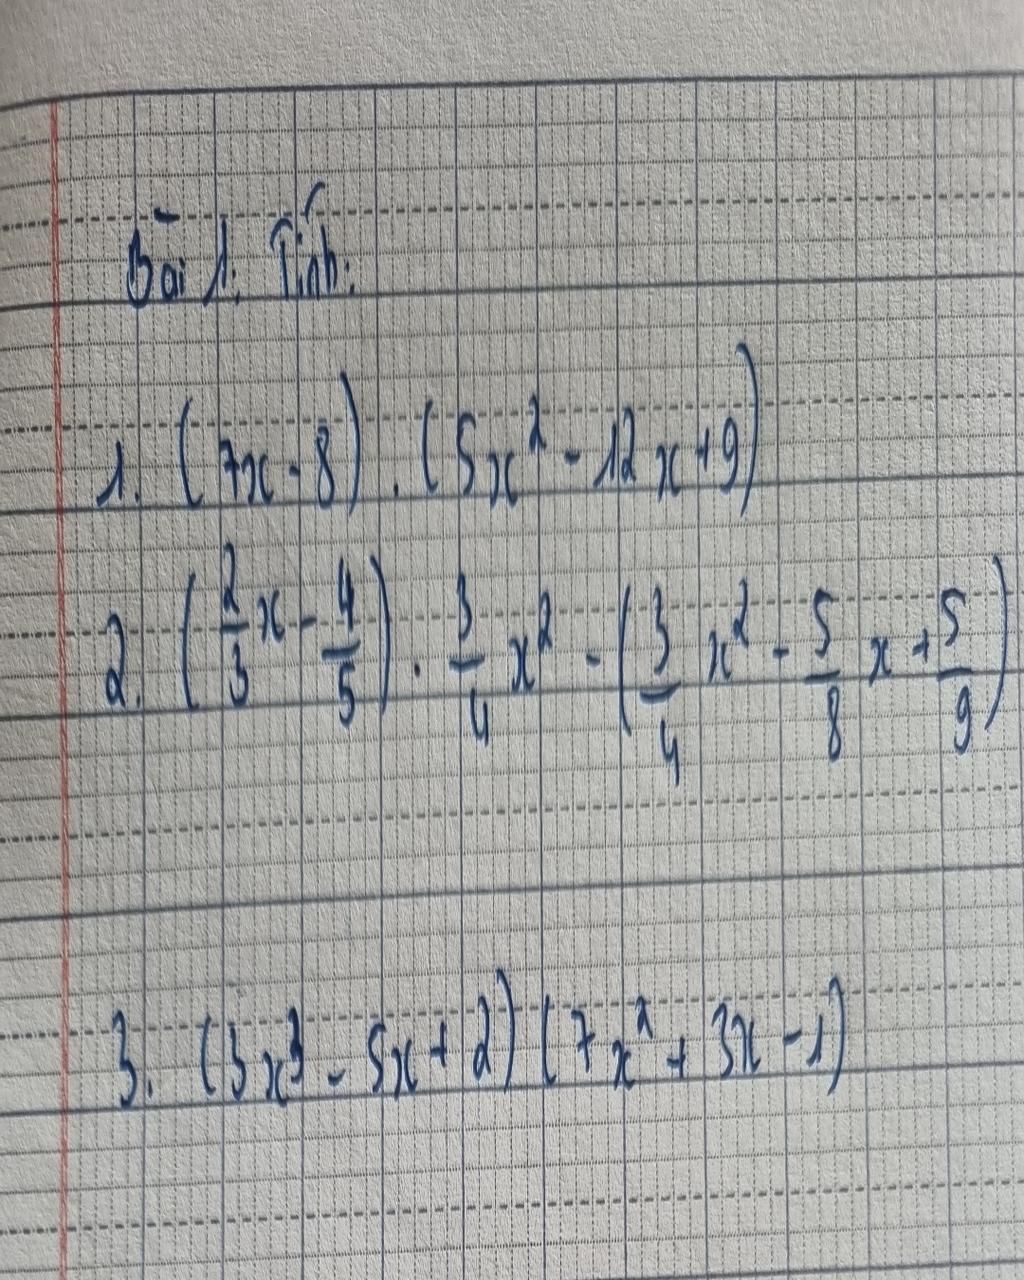 Bài 1. Tính.
1. (7x - 8) . (5x² - 12x + 9)
2. (2/3 x - 4/5) . 3/4 x² - (3/4 x² - 5/8 x + 5/9)
3. (3x³ - 5x + 2) (7x² + 3x - 1)